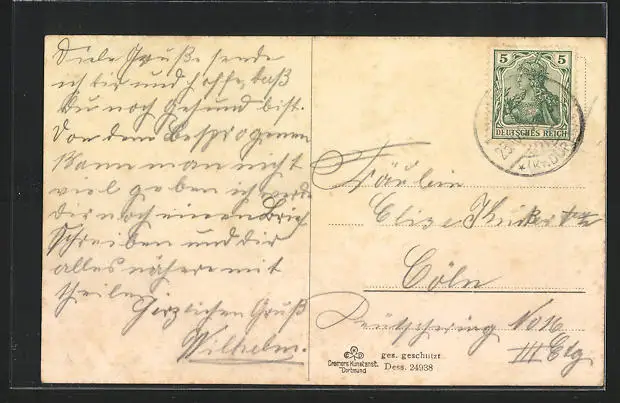 Viele Grüße sende
ich dir und hoffe, daß
du noch gesund bist.
Von dem Besprogenen
kann man nicht
viel geben ich werde
dir noch einen Brief
schreiben und dir
alles nähere mit
theilen
Herzlichen Gruß
Wilhelm.
5 5
DEUTSCHES REICH
Fräulein
Elise
Cöln
Deutschering No 16
III Etg
Cramers Kunstanst.
Dortmund
ges. geschützt
Dess. 24938